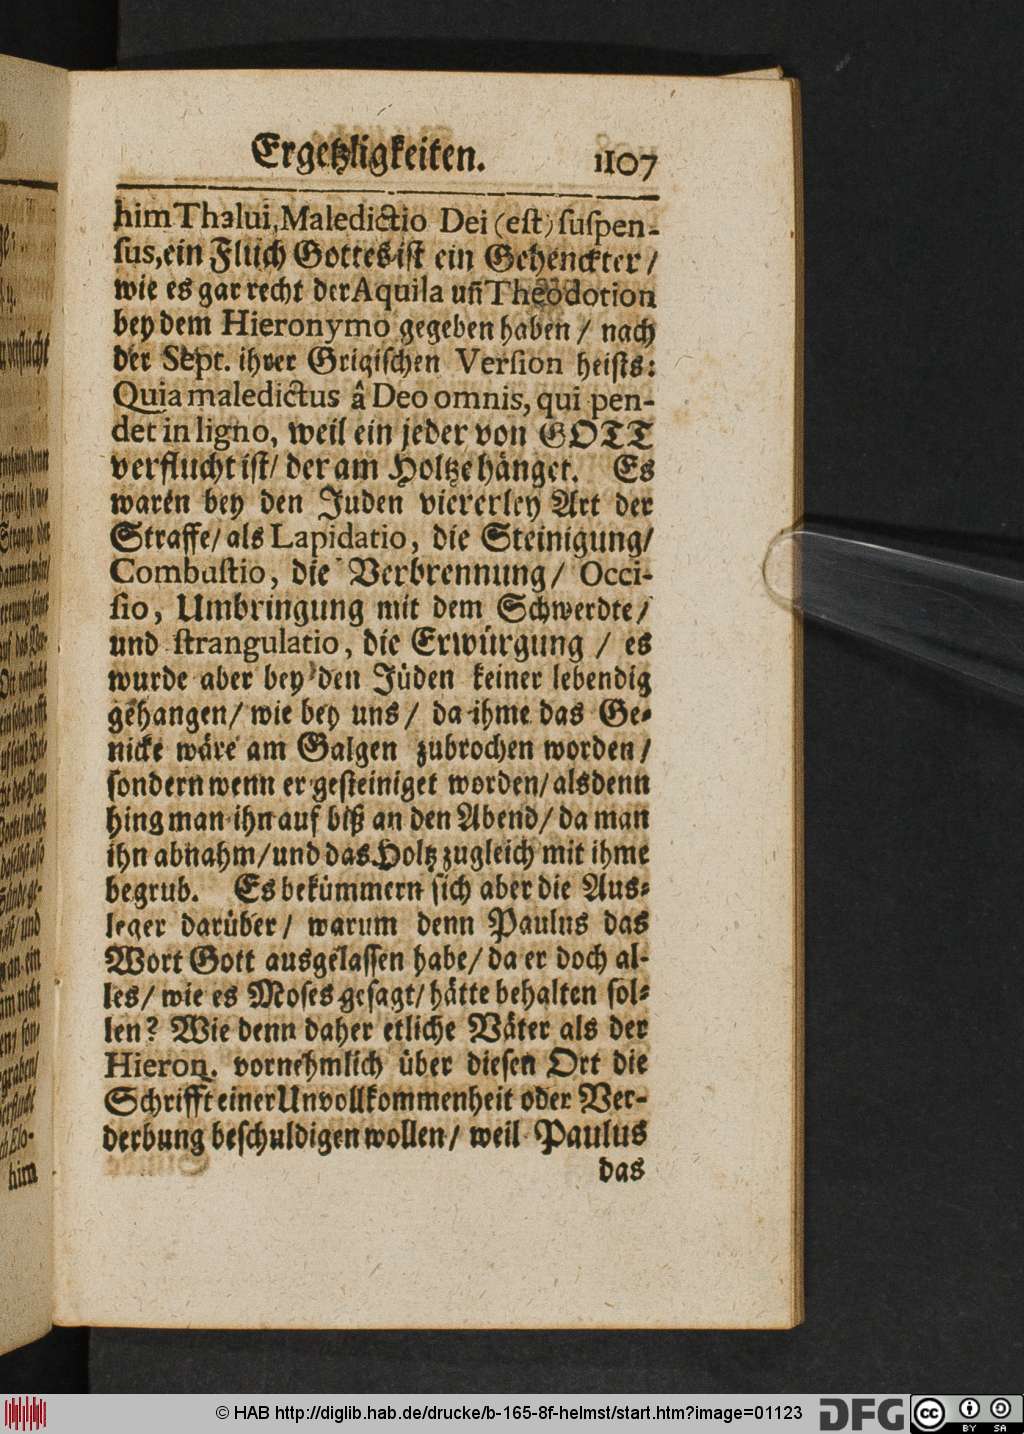 Ergetzligkeiten. 1107
him Thalui, Maledictio Dei (est) suspen-
sus, ein Fluch Gottes ist ein Gehenckter /
wie es gar recht der Aquila uñ Theodotion
bey dem Hieronymo gegeben haben / nach
der Sept. ihrer Grigischen Version heists:
Quia maledictus â Deo omnis, qui pen-
det in ligno, weil ein jeder von GOTT
verflucht ist / der am Holtze hänget. Es
waren bey den Juden viererley Art der
Straffe / als Lapidatio, die Steinigung /
Combustio, die Verbrennung / Occi-
sio, Umbringung mit dem Schwerdte /
und strangulatio, die Erwürgung / es
wurde aber bey den Jüden keiner lebendig
gehangen / wie bey uns / da ihme das Ge-
nicke wäre am Galgen zubrochen worden /
sondern wenn er gesteiniget worden / alsdenn
hing man ihn auf biß an den Abend / da man
ihn abnahm / und das Holtz zugleich mit ihme
begrub. Es bekümmern sich aber die Aus-
leger darüber / warum denn Paulus das
Wort Gott ausgelassen habe / da er doch al-
les / wie es Moses gesagt / hätte behalten sol-
len? Wie denn daher etliche Väter als der
Hieron. vornehmlich über diesen Ort die
Schrifft einer Unvollkommenheit oder Ver-
derbung beschuldigen wollen / weil Paulus
das
him
© HAB http://diglib.hab.de/drucke/b-165-8f-helmst/start.htm?image=01123
DFG
cc
BY SA